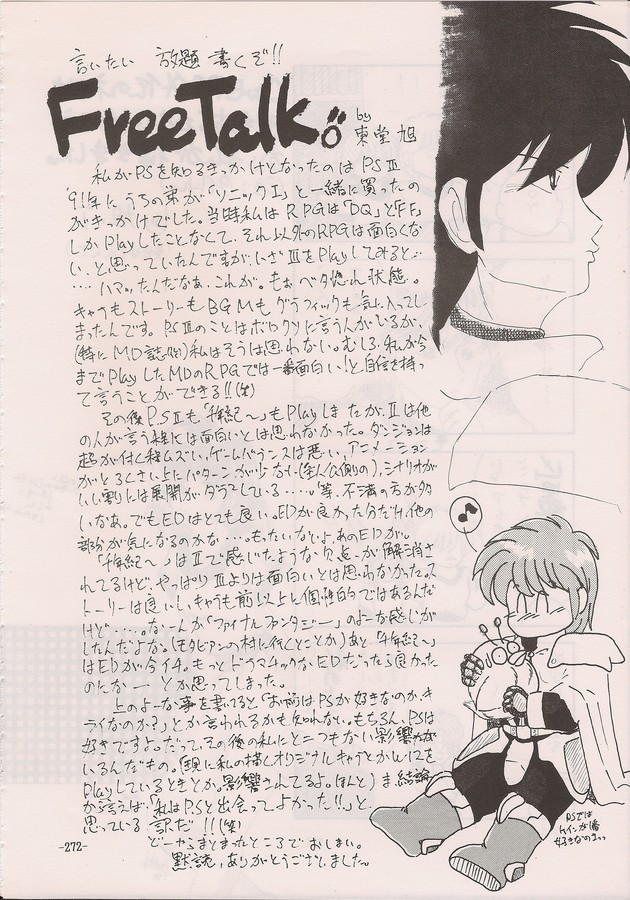 言いたい 放題 書くぞ!!
FreeTalk
by
東堂 旭
私がPSを知るきっかけとなったのはPSⅢ
'91年にうちの弟が「ソニックⅠ」と一緒に買ったの
がきっかけでした。当時私はRPGは「DQ」と「FF」
しかPlayしたことなくて、それ以外のRPGは面白くな
い、と思っていたんですが、いざⅢをPlayしてみると…
…ハマったんだなあ、これが。もぉベタ惚れ状態。
キャラもストーリーもBGMもグラフィックも気に入ってし
まったんです。PSⅢのことはボロクソに言う人がいるが、
(特にMD誌)私はそうは思わない。むしろ、私が今
までPlayしたMDのRPGでは一番面白い!と自信を持っ
て言うことができる!!(笑)
その後PSⅡも「千年紀〜」もPlayしましたが、Ⅱは他
の人が言う程には面白いとは思わなかった。ダンジョンは
超が付く程ムズい、ゲームバランスは悪い、アニメーション
がとろくさい上にパターンが少ない(主人公側の)、シナリオが
いい割には展開がダラっとしている……。等、不満の方が多
いなあ。でもEDはとても良い。EDが良かった分だけ、他の
部分が気になるのかな…。もったいなよ、あのEDが。
「千年紀〜」はⅡで感じたような欠点が解消さ
れてるけど、やっぱりⅢよりは面白いとは思わなかった。ス
トーリーは良いし、キャラも前以上に個性的ではあるんだ
けど……。なーんか「ファイナルファンタジー」のよーな感じが
したんだよな。(モタビアンの村に行くとことか)あと「千年紀〜」
はEDが今イチ。もっとドラマチックなEDだったら良かった
のになー とか思ってしまった。
上のよーな事を書いてると「お前はPSが好きなのか、キ
ライなのか?」とか言われるかも知れない。もちろん、PSは
好きですよ。だって、その後の私にとてつもない影響が
いるんだもの。(現に私の描くオリジナルキャラとか
Playしているときとか。影響されてるよ。ほんと)ま、結論
から言えば、「私はPSと出会ってよかった!!」と
思っている 訳だ!!(笑)
どーやらまとまったところでおしまい。
黙読、ありがとうございました。
PSでは
ケインが1番
好きなのよっっ
-272-